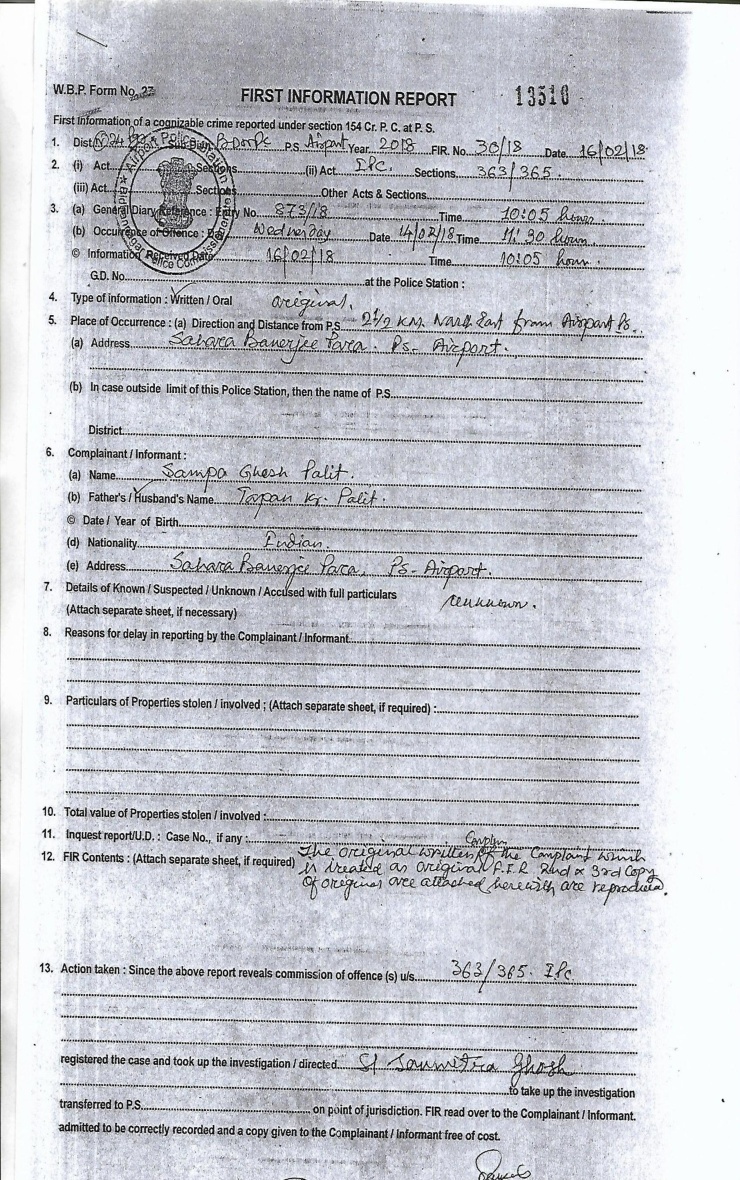 W.B.P. Form No. 27
FIRST INFORMATION REPORT 13510
First Information of a cognizable crime reported under section 154 Cr. P. C. at P. S.
1. Dist. P.S. Airport Year 2018 FIR. No. 30/18 Date 16/02/18
2. (i) Act Sections (ii) Act IPC. Sections 363/365.
(iii) Act Sections Other Acts & Sections
3. (a) General Diary Reference : Entry No. 873/18 Time 10:05 hours.
(b) Occurrence of Offence : Day Wednesday Date 14/02/18 Time 11:30 hours
© Information Received Date 16/02/18 Time 10:05 hours.
G.D. No. at the Police Station :
4. Type of information : Written / Oral original.
5. Place of Occurrence : (a) Direction and Distance from P.S. 2½ KM. North East from Airport Ps.
(a) Address Sahara Banerjee Para. Ps- Airport.
(b) In case outside limit of this Police Station, then the name of P.S.
District
6. Complainant / Informant :
(a) Name Sampa Ghosh Palit.
(b) Father's / Husband's Name Tapan Kr. Palit.
© Date / Year of Birth
(d) Nationality Indian
(e) Address Sahara Banerjee Para, Ps- Airport.
7. Details of Known / Suspected / Unknown / Accused with full particulars
(Attach separate sheet, if necessary) unknown.
8. Reasons for delay in reporting by the Complainant / Informant
9. Particulars of Properties stolen / involved ; (Attach separate sheet, if required) :
10. Total value of Properties stolen / involved :
11. Inquest report/U.D. : Case No., if any :
12. FIR Contents : (Attach separate sheet, if required) The original written of the Complaint which
is treated as original F.I.R 2nd & 3rd Copy
of original are attached herewith are reproduced.
13. Action taken : Since the above report reveals commission of offence (s) u/s. 363/365. IPC
registered the case and took up the investigation / directed SI Soumitra Ghosh
to take up the investigation
transferred to P.S. on point of jurisdiction. FIR read over to the Complainant / Informant.
admitted to be correctly recorded and a copy given to the Complainant / Informant free of cost.